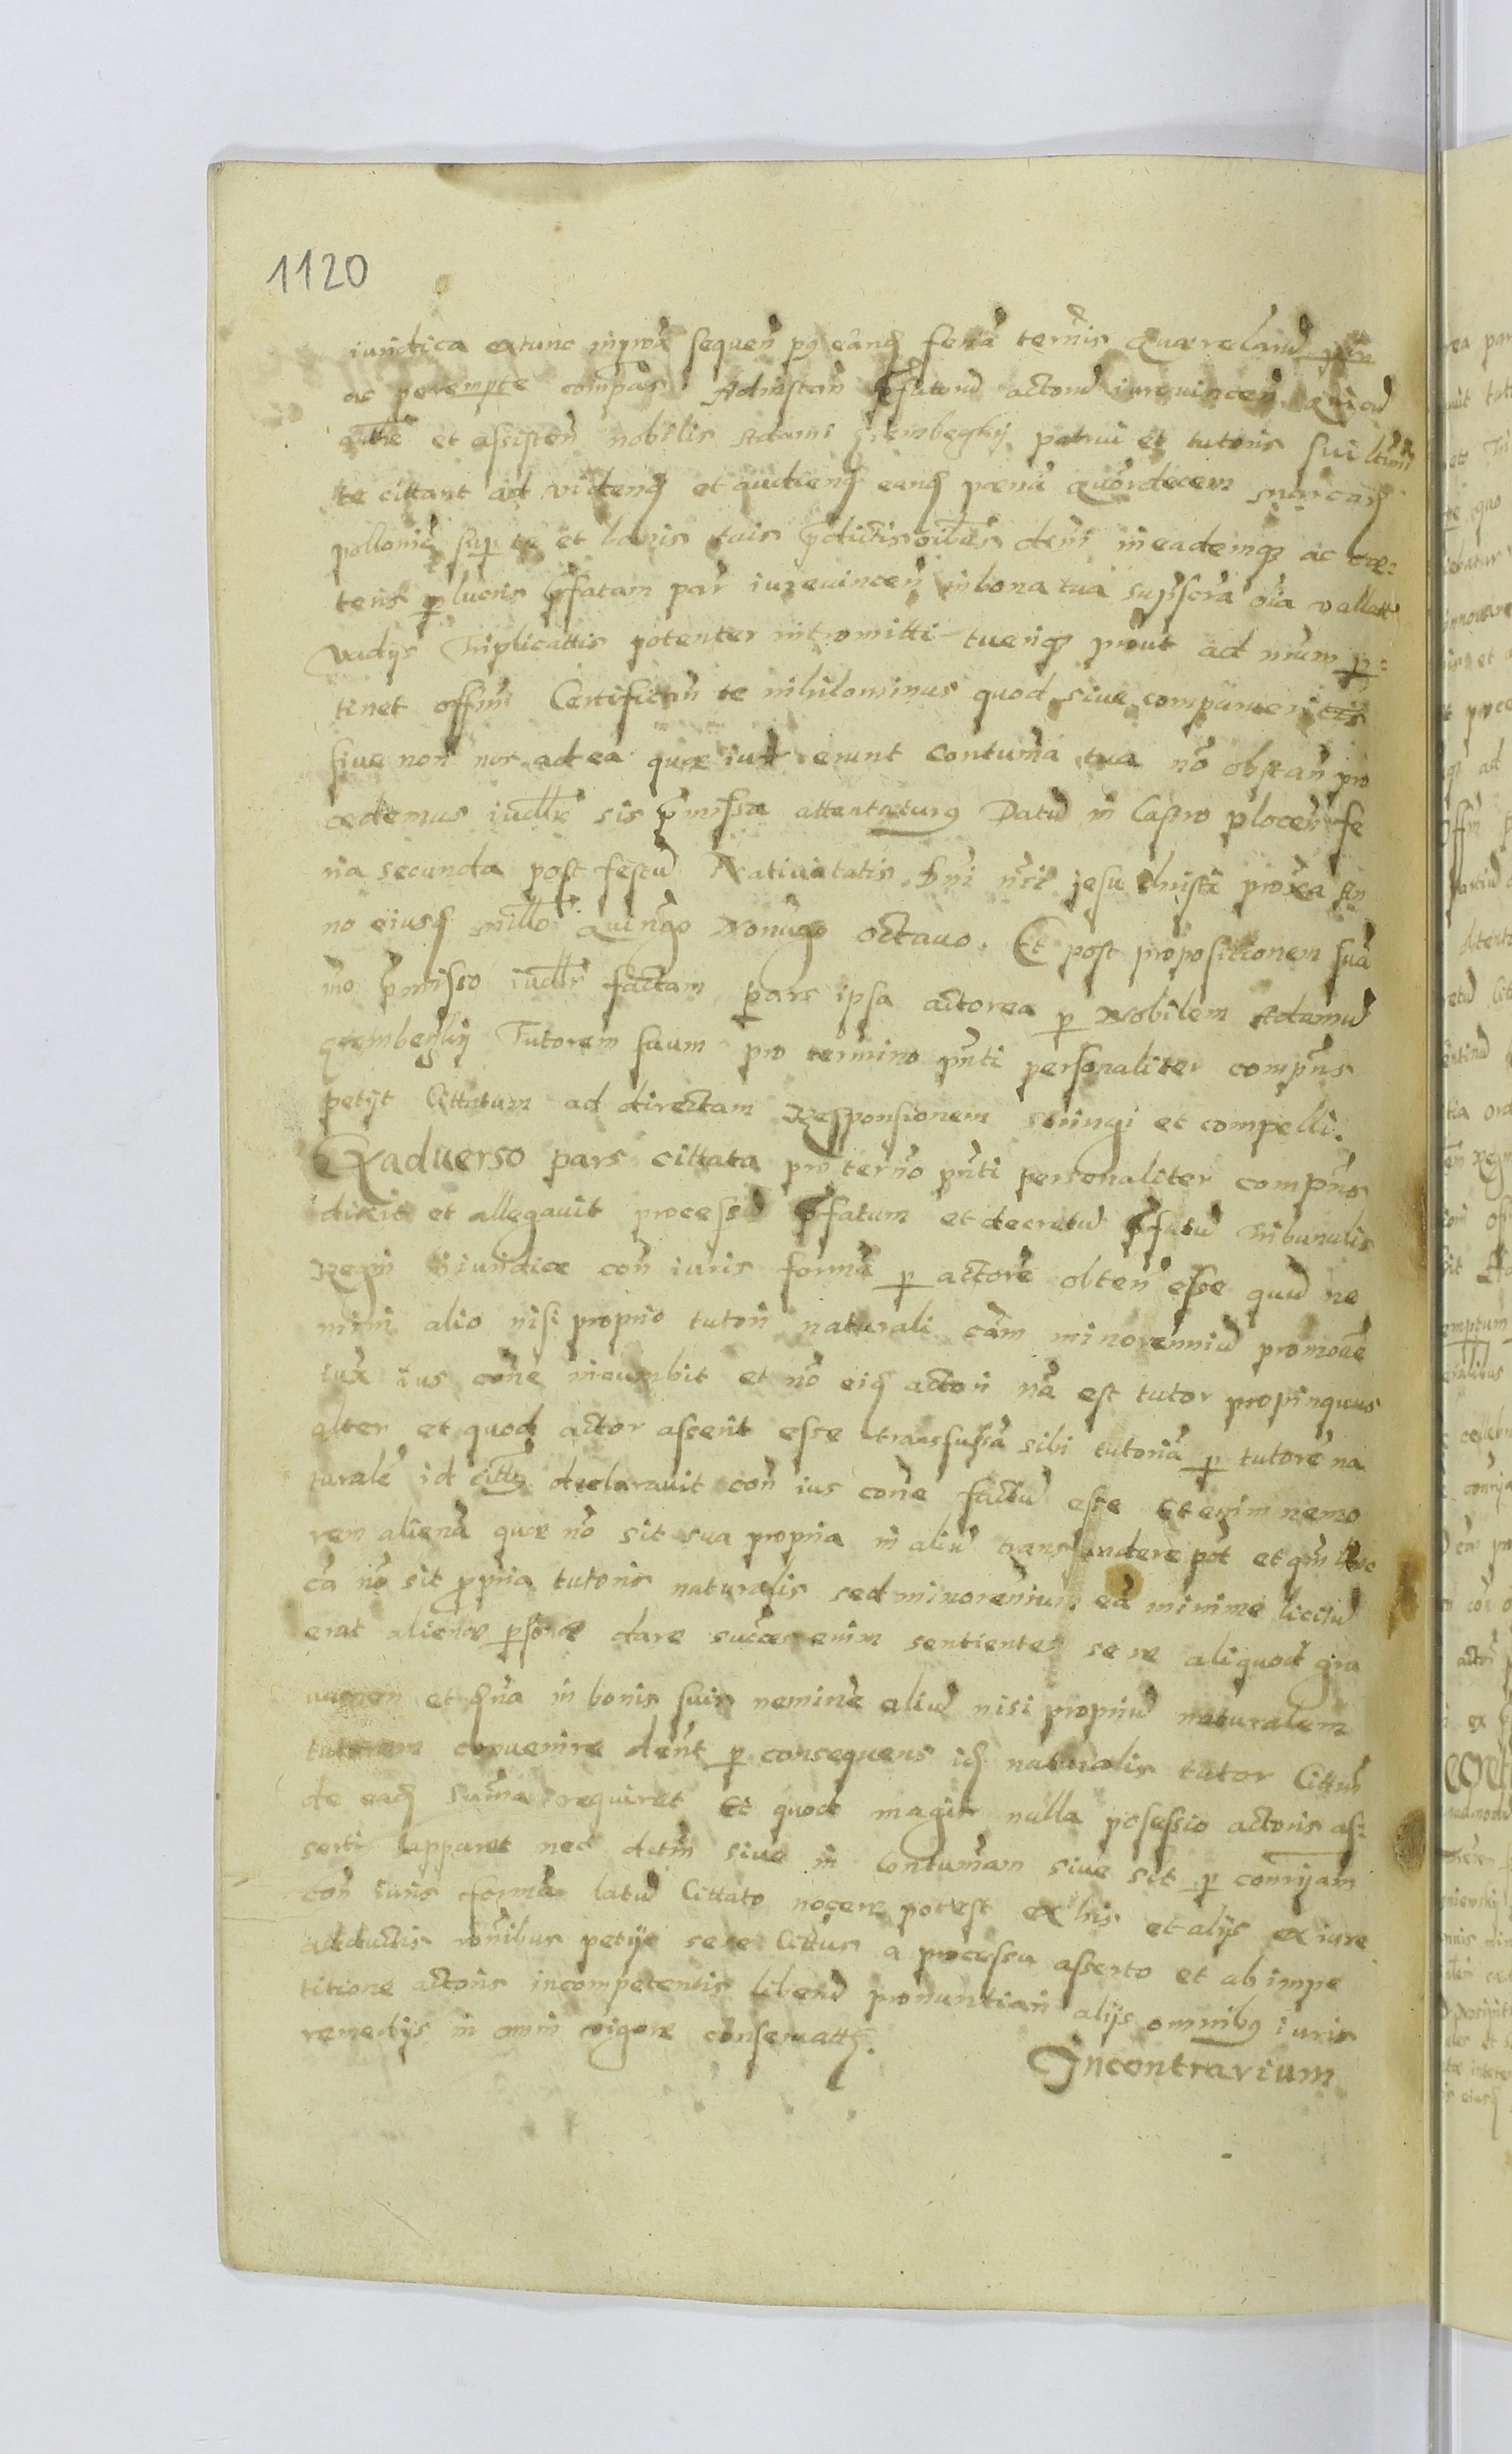 1120
iuridica extunc inprox̃ sequeñ p9 eand feria termis Quærelarũ
ac perempte compās. Ad instañ p̃fatorũ actorũ iurevinceñ, qui cũ
authe et assisteñ nobilis Adami Grembeczkij patrui et tutoris sui
te cittant ad videnđ et audienđ eand pœnã Quordecem marcarũ
polloniçł sup te et bonis tuis p̃dictis oibus deñi in eademq3 ac cæ-
teris p lucris p̃fatam par iurevinceñ in bona tua supscra oia vallatt
Vadijs Triplicattis potenter intromitti tueriq3 prout ad nrum p-
tinet offm Certifican te nihilominus quod sive comparueris
sive non nos ad ea quæ iuris erunt contuma tua nō obstan pro
cedemus iudłr sis p̃missa attentaturus Datũ in Castro plocen fe
ria secunda post festũ Nativitatis Dni nri jesu christi proxa An
no eiusđ millo Quingo Nonago octavo. Et post propositionem suã
mõ p̃misso iudłr factam pars ipsa actorea p Nobilem Adamũ
Grembeczkij Tutorem suum pro termino pñti personaliter compñs
petijt Cittatum ad directam Responsionem stringi et compelli.
Exadverso pars cittata pro termõ pñti personaliter compñs
dixit et allegavit processũ p̃fatum et decretũ p̃fatũ Tribunalis
Regni iuridicæ coñ iuris formã p actorē obteñ esse quũ ne
mini alio nisi proprio tutori naturali cām minorenniũ promovē
iux ius cōne incumbit et nō eiđ actori nã est tutor propinquus
alter et quod actor asserit esse transfusã sibi tutoriã p tutorē na
turalē id citts declaravit coñ ius cōne factũ esse etenim nemo
rem alienã quæ nō sit sua propria in aliũ transfundere pōt et qm hæc
cã nō sit ppria tutoris naturalis sed minorenium eã minime licitũ
erat alienæ psonæ dare succēs enim sentientes se re aliquod gra
vamen et in bonis suis neminē aliũ nisi propriũ naturalem
tutorem convenire deñt p consequens iđ naturalis tutor Cittum
de eađ suma requiret Et quod magis nulla possessio actoris as-
serti apparet nec dctm sive in contumam sive sit p comijam
coñ iuris formã latũ Cittato nocere potest ex his et alijs ex iure
adductis rōnibus petijt sese Cittus a processu asserto et ab impe
titione actoris incompetentis liberũ pronuntiari alijs omnibus iuris
remedijs in omni vigore conservattđ.
Incontrarium